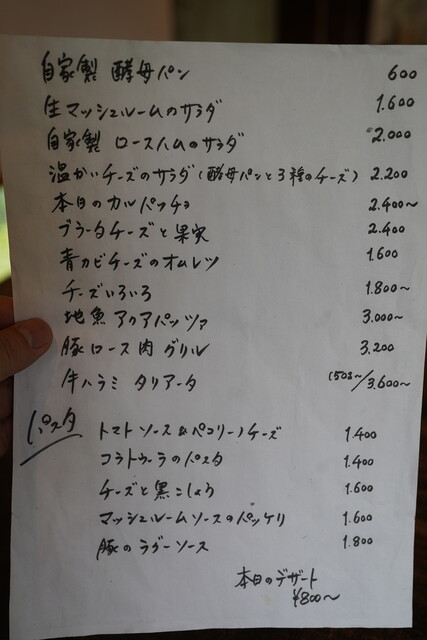 自家製 酵母パン 600
生マッシュルームのサラダ 1.600
自家製 ロースハムのサラダ 2.000
温かいチーズのサラダ(酵母パンと3種のチーズ) 2.200
本日のカルパッチョ 2.400~
ブラータチーズと果実 2.400
青カビチーズのオムレツ 1.600
チーズいろいろ 1.800~
地魚 アクアパッツァ 3.000~
豚ロース肉 グリル 3.200
牛ハラミ タリアータ (150g~/3.600~
パスタ
トマトソース&ペコリーノチーズ 1.400
コラトゥーラのパスタ 1.400
チーズと黒こしょう 1.600
マッシュルームソースのパッケリ 1.600
豚のラグーソース 1.800
本日のデザート
¥800~